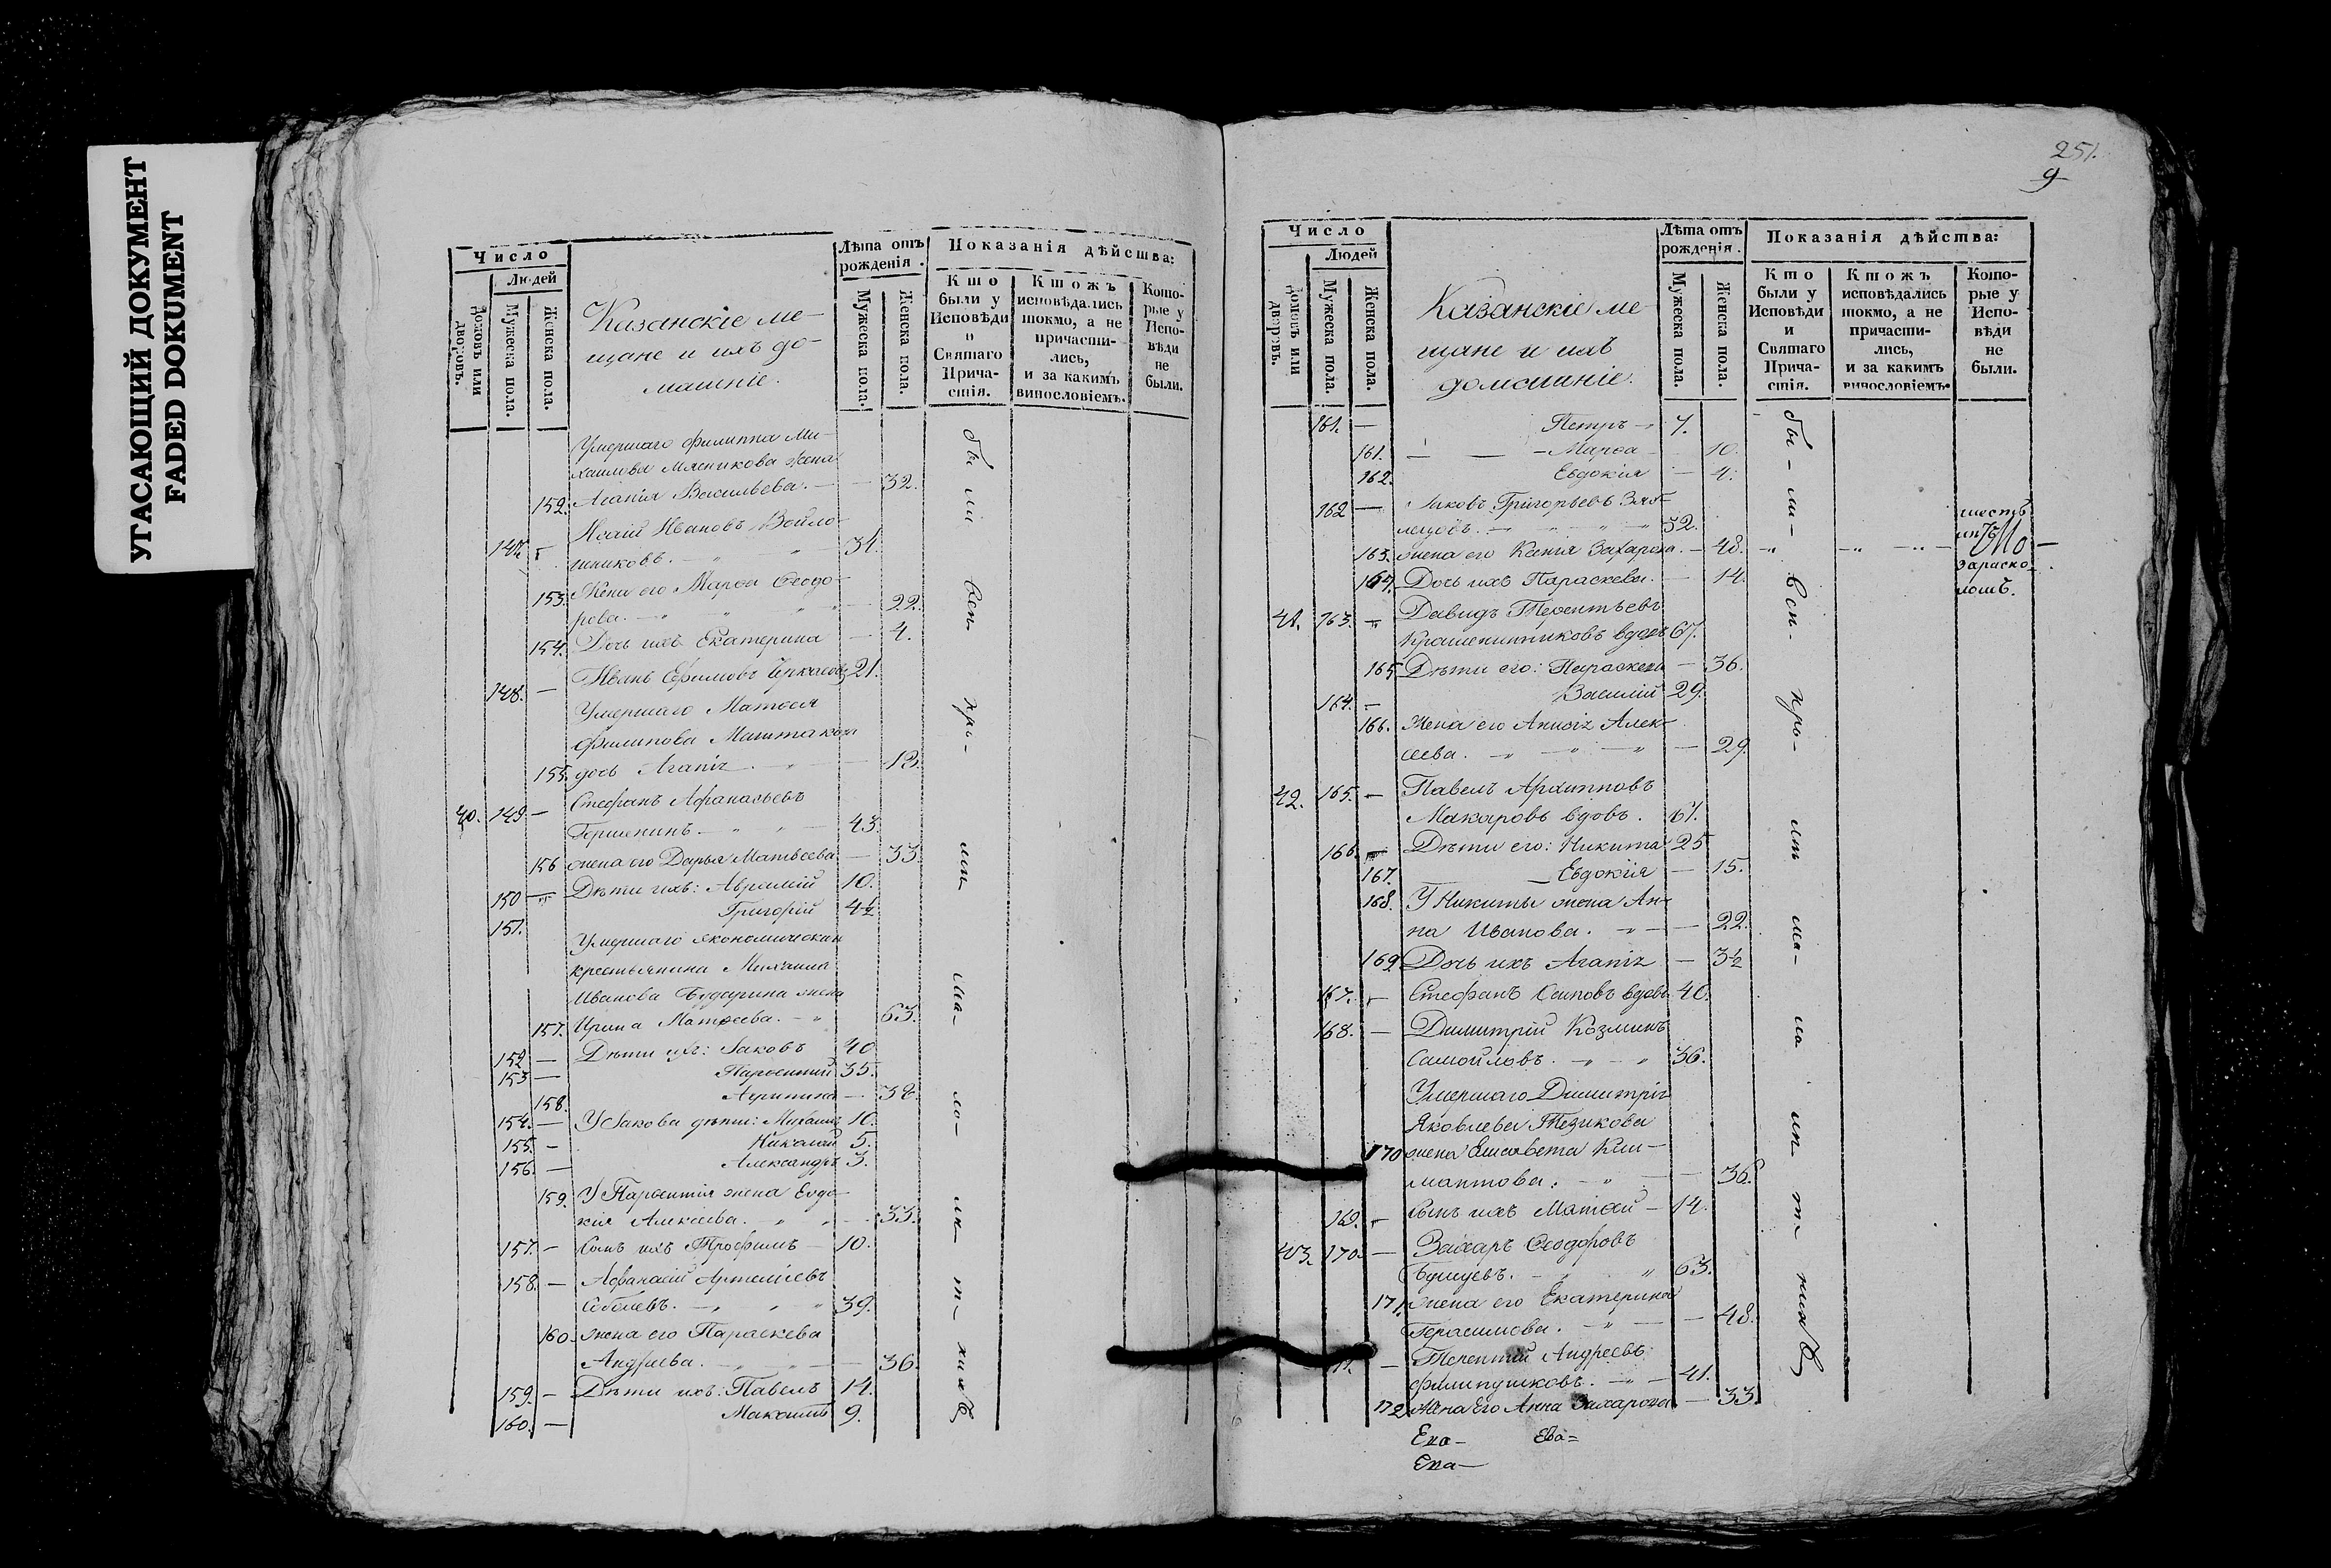 УГАСАЮЩИЙ ДОКУМЕНТ
FADED DOKUMENT
Число
Людей
домовъ или дворовъ.
Мужеска пола.
Женска пола.
Казанскіе ме-
щане и ихъ до-
машніе.
Лѣта отъ рожденія.
Мужеска пола.
Женска пола.
Показанія дѣйства:
Кто были у Исповѣди и Святаго Прича-стія.
Ктожъ исповѣдались токмо, а не причасти-лись, и за какимъ винословіемъ.
Кото-рые у Испо-вѣди не были.
Умершаго Филиппа Ми-
хаилова Мясникова жена
152. Агапія Васильева. — — 32.
Исаій Ивановъ Войло-
147. — шниковъ. — 34.
153. Жена его Марѳа Ѳеодо-
рова. — 22.
154. Дочь ихъ Екатерина — 4.
148. — Иванъ Ефимовъ Черкасовъ 21.
Умершаго Матѳея
Филипова Маштакова
155. дочь Агапія. — 13.
40. 149. — Стефанъ Афанасьевъ
Горшенинъ — 43.
156 жена его Дарья Матвѣева — 33
150 — Дѣти ихъ: Аврамій 10.
151. Григорій 4½
Умершаго економическаго
крестьянина Михаила
Иванова Бударина жена
157. Ирина Матвѣева. — 63.
152 — Дѣти ихъ: Іаковъ 40
153 — Парѳентій 35.
158. Агрипина — 38
154. — У Іакова дѣти: Михаилъ 10.
155. — Николай 5.
156. — Александръ 3.
159. У Парѳентія жена Евдо-
кія Алексѣева. — 33.
157. — Сынъ ихъ Трофимъ — 10.
158. — Афанасій Артеміевъ
Соболевъ. — 39.
160. жена его Параскева
Андреева. — 36.
159. — Дѣти ихъ: Павелъ 14.
160. — Максимъ 9.
бы ли всп при ли ма ло лѣ т нихъ
251.
9
Число
Людей
домовъ или дворовъ.
Мужеска пола.
Женска пола.
Казанскіе ме-
щане и ихъ
домашніе.
Лѣта отъ рожденія.
Мужеска пола.
Женска пола.
Показанія дѣйства:
Кто были у Исповѣди и Святаго Прича-стія.
Ктожъ исповѣдались токмо, а не причасти-лись, и за какимъ винословіемъ.
Кото-рые у Испо-вѣди не были.
161. — Петръ — 7.
161. — — — Марѳа — 10.
162. Евдокія — 4.
162 — Іаковъ Григорьевъ
32.
163. жена его Ксенія Захарова. — 48.
164. Дочь ихъ Параскева. — 14.
41. 163. — Давидъ Терентьевъ
Крашенинниковъ вдовъ 67.
165 Дѣти его: Параскева — 36.
164. — Василій 29.
166. жена его Анисія Алек-
сеева. — 29.
42. 165. — Павелъ Архиповъ
Макаровъ вдовъ. 61.
166. — Дѣти его: Никита 25
167. — Евдокія — 15.
168. У Никиты жена Ан-
на Иванова. — 22.
169 Дочь ихъ Агапія — 3½
167. — Стефанъ Осиповъ вдовъ 40.
168. — Димитрій Козминъ
Самойловъ. — 36.
Умершаго Димитрія
Яковлева Тезикова
170 жена Елисавета Кли-
мантова. — 36.
169. — Сынъ ихъ Матѳей — 14.
43. 170. — Захаръ Ѳеодоровъ
Бушуевъ. — 63.
171. жена его Екатерина
Герасимова. — 48.
71. — Терентій Андреевъ
Филипушковъ. — 41.
172 Жена Его Анна Захарова — 33.
Ека- Ева=
Ека—
за раско-
ломъ.